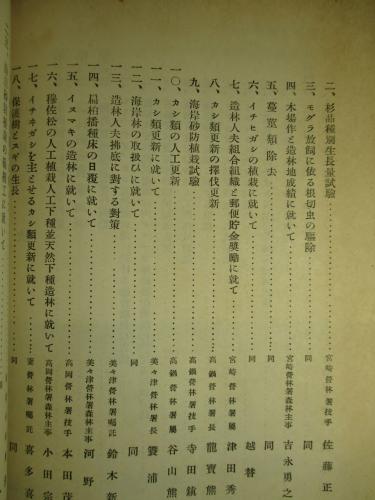 二、杉品種別生長量試驗 宮崎營林署技手 佐藤正
三、モグラ放飼に依る根切虫の驅除 同
四、木場作と造林地成績に就いて 宮崎營林署森林主事 吉永勇之
五、蔓莖類除去 同
六、イチヒガシの植栽に就いて 同 越替
七、造林人夫組合組織と郵便貯金奬勵に就て 宮崎營林署屬 津田秀
八、カシ類更新の擇伐更新 高鍋營林署長 龍寶熊
九、海岸砂防植栽試驗 高鍋營林署技手 寺田鎮
一〇、カシ類の人工更新 高鍋營林署屬 谷山熊
一一、カシ類更新に就いて 美々津營林署長 簑浦
一二、海岸林の取扱ひに就いて 同
一三、造林人夫拂底に對する對策 美々津營林署囑託 鈴木新
一四、扁柏播種床の日覆に就いて 美々津營林署森林主事 河野
一五、イヌマキの造林に就いて 高岡營林署技手 本田茂
一六、穆佐松の人工植栽人工下種並天然下種造林に就いて 高岡營林署森林主事 小田宗
一七、イチヰガシを主とせるカシ類更新に就いて 營林署囑託 喜多喜
一八、保護樹とスギの生長 同